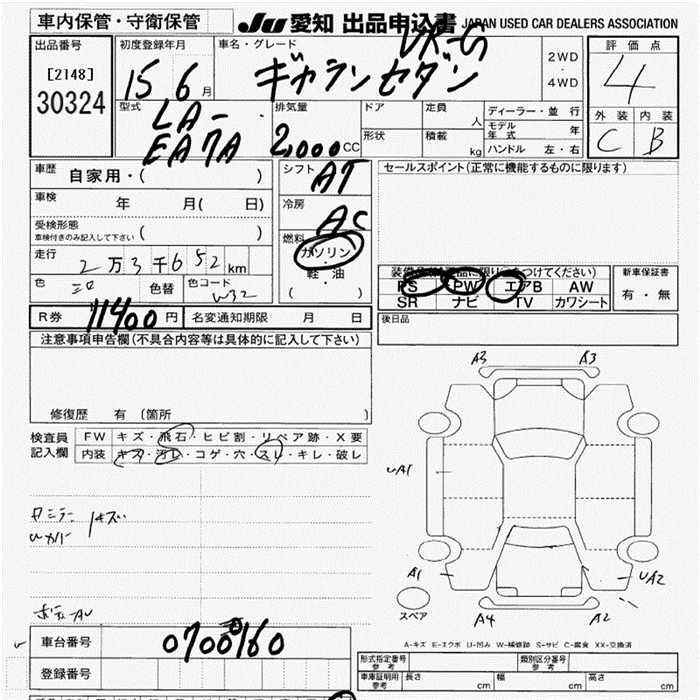 車内保管・守衛保管
JU 愛知 出品申込書 JAPAN USED CAR DEALERS ASSOCIATION
出品番号
[2148]
30324
初度登録年月
15 6 月
車名・グレード
VR-G
ギャランセダン
2WD
・
4WD
評価点
4
外装 内装
C B
型式
LA-
EA7A
排気量
2,000 CC
ドア
形状
定員 人
積載 kg
ディーラー・並行
モデル年式 年
ハンドル 左・右
車歴
自家用・( )
車検
年 月( 日)
受検形態
車検付きのみ記入して下さい ( )
走行
2万3千652km
色
色替
色コード
W32
シフト
AT
冷房
AC
燃料
ガソリン
・
軽・油
( )
セールスポイント(正常に機能するものに限ります)
PS PW エアB AW
SR ナビ TV カワシート
新車保証書
有・無
R券 11400 円
名変通知期限 月 日
後日品
注意事項申告欄(不具合内容等は具体的に記入して下さい)
修復歴 有 〔箇所 〕
検査員
記入欄
FW キズ・飛石・ヒビ割・リペア跡・X要
内装 キズ・汚レ・コゲ・穴・スレ・キレ・破レ
A3 A3
UA1
A1 UA2
A4 A2
スペア
A-キズ E-エクボ U-凹み W-補修跡 S-サビ C-腐食 XX-交換済
車台番号
0700160
登録番号
形式指定番号
参考
類別区分番号
参考
車庫証明用
参考
長さ cm
幅 cm
高さ cm